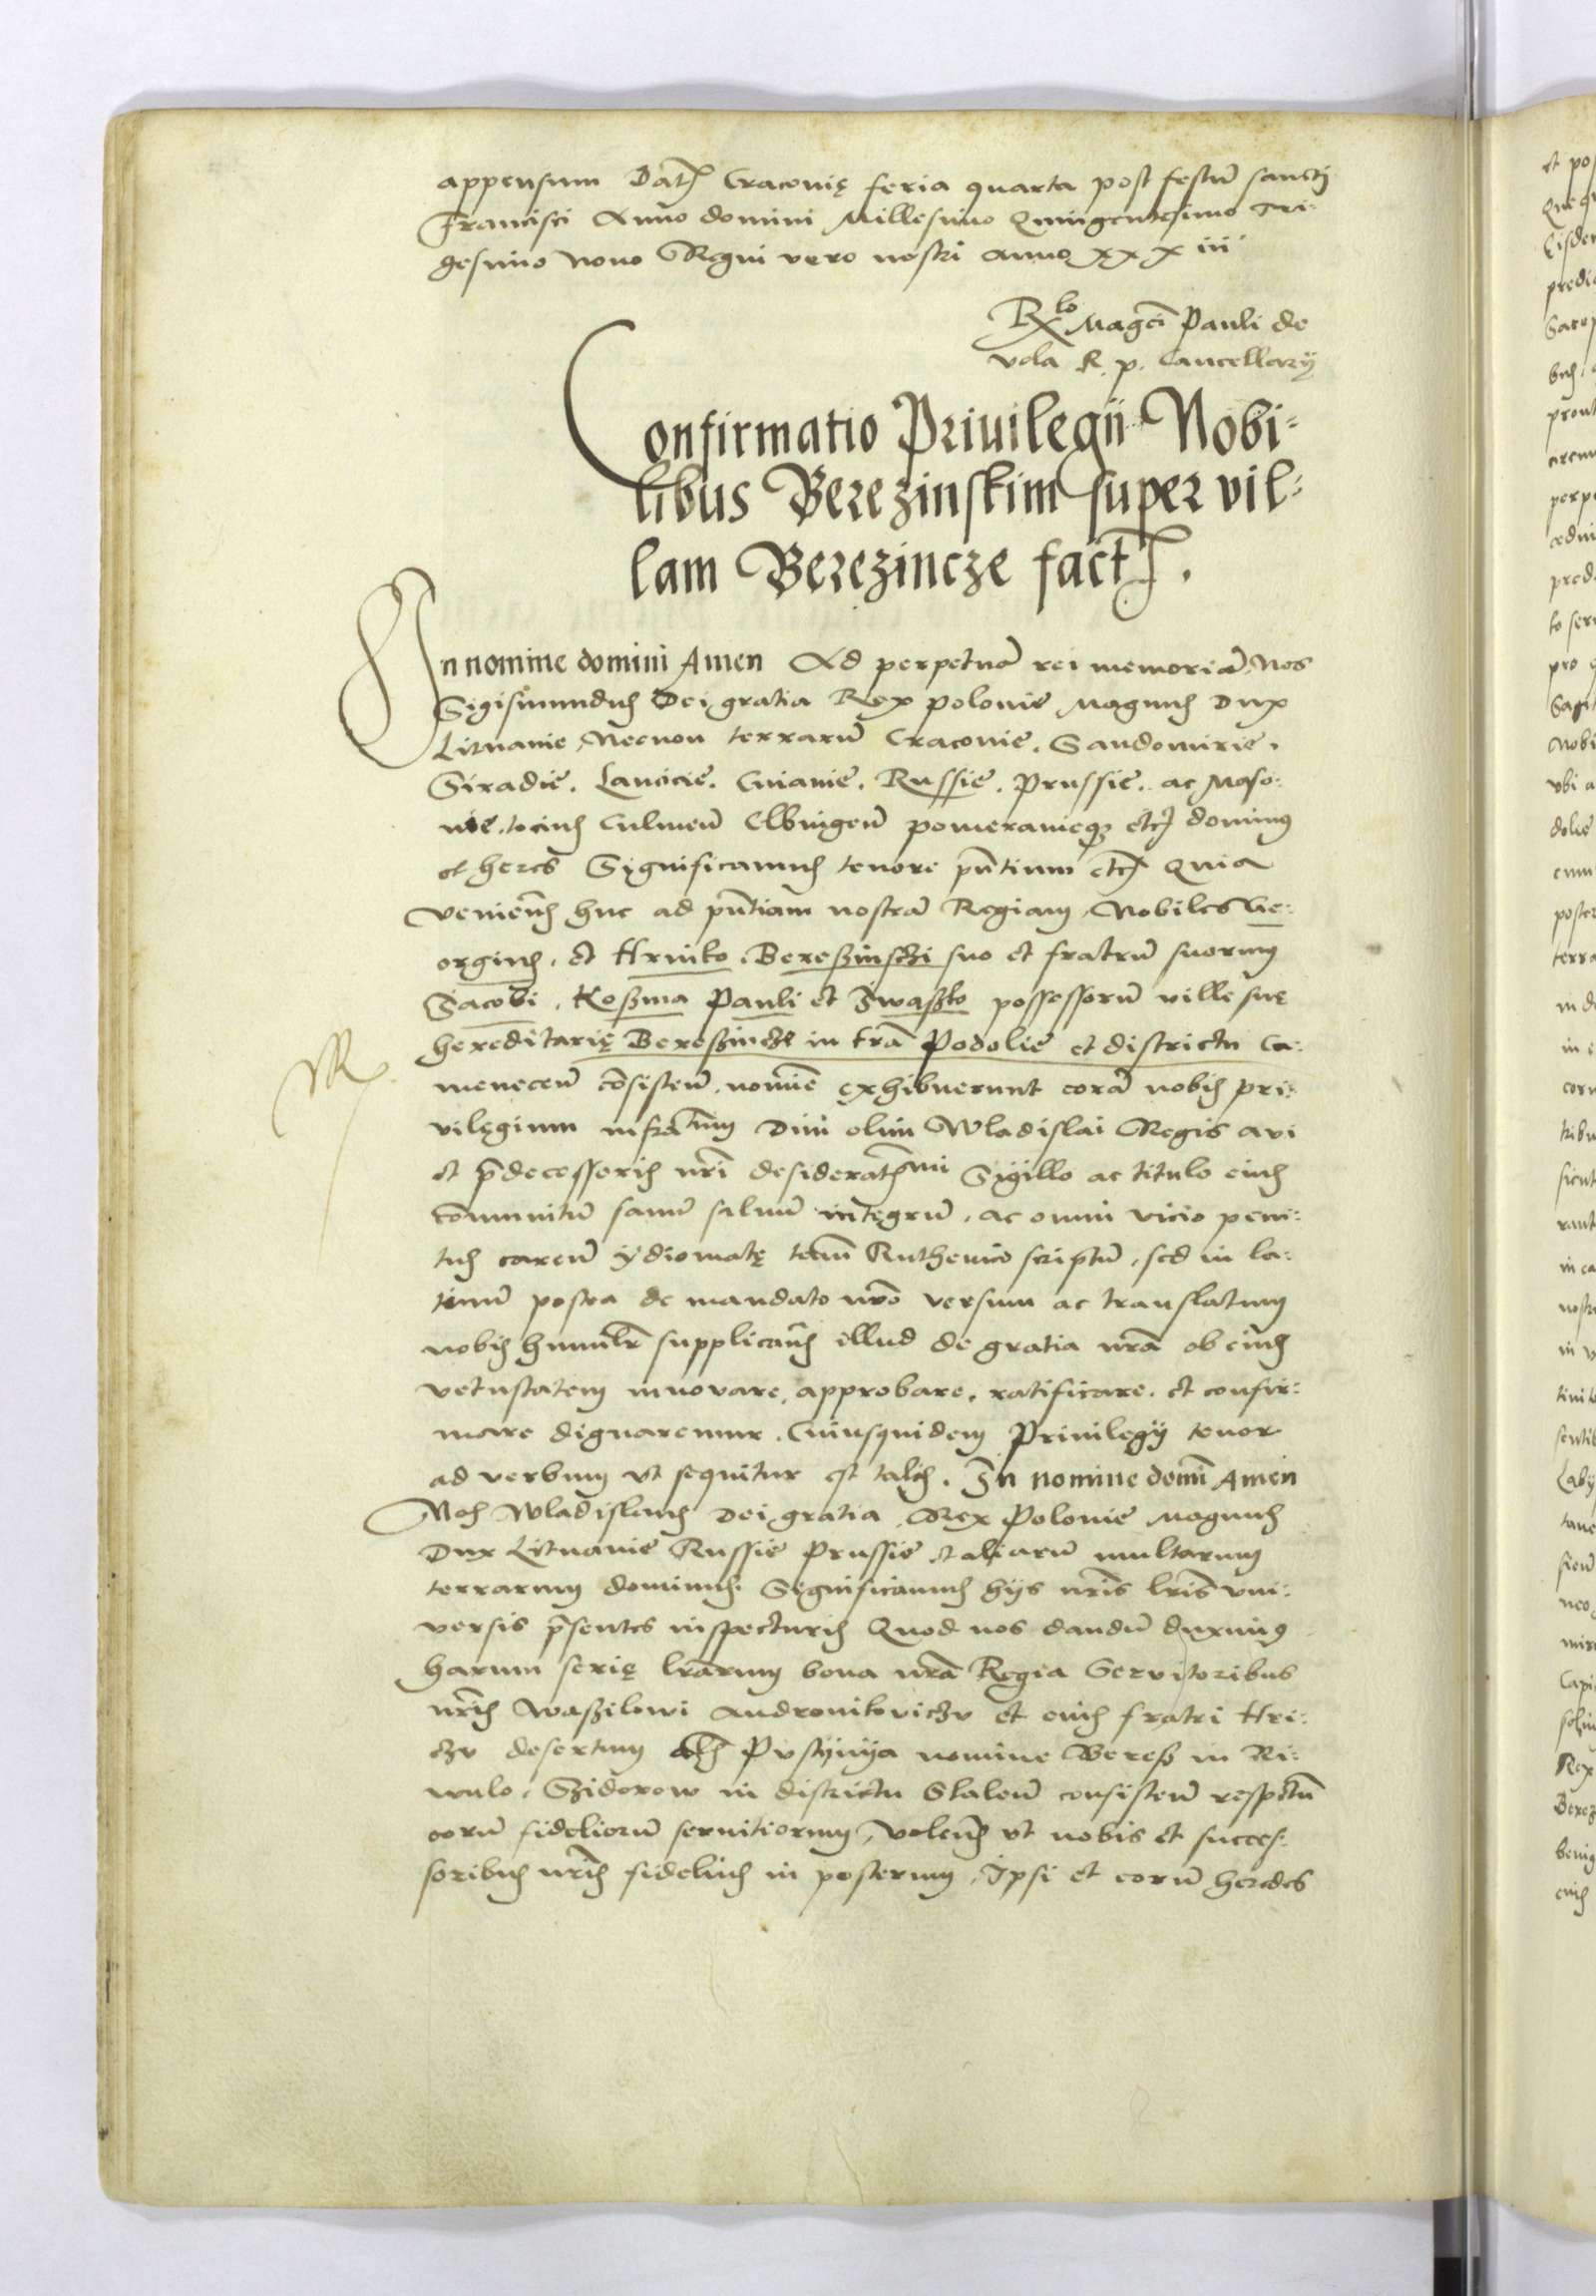 appensum Dat Cracovię feria quarta post festū sancti
Francisci Anno domini Millesimo Quingentesimo Tri-
gesimo nono Regni vero nostri anno xxxiii
Rlo Magci Pauli de
vola R. p. Cancellarij
Confirmatio Priuilegii Nobi-
libus Berezinskim super vil-
lam Berezincze fact.
In nomine domini Amen Ad perpetuā rei memoriā Nos
Sigismundus Dei gratia Rex polonie Magnus Dux
Lituanie Necnon terrarū Cracovie. Sandomirie.
Siradie. Lancicie. Cuiauie. Russie. Prussie. ac Maso-
uie. tocius Culmen̄ Elbingen̄ pomeranieqꝫ etc dominus
et heres Significamus tenore pn̄tium etc Quia
venien̄ huc ad pn̄tiam nostrā Regiam Nobiles Ge-
orgius. et Hrinko. Bereszinsczi suo et fratrū suorum
Iacobi. Koszma Pauli et Iwaszko possessorū ville suę
hereditarię Bereszincze in trā Podolie et districtu Ca-
menecen̄ cōsisten̄. nomīe exhibuerunt corā nobis pri-
vilegium infratum Diui olim Wladislai Regis avi
et p̄decessoris nrī desideratmi Sigillo ac titulo eius
cōmunitū sanū saluū integrū. ac omni vicio peni-
tus caren̄ ijdiomatę tam̄ Ruthenico scriptū. sed in la-
tinū postea de mandato nrō versum ac translatum
nobis humilr̄ supplican̄ illud de gratia nrā ob eius
vetustatem innovare. approbare. ratificare. et confir-
mare dignaremur. Cuiusquidem Priuilegij tenor
ad verbum vt sequitur est talis. In nomine domī Amen
Nos Wladislaus Dei gratia Rex Polonie Magnus
Dux Lituanie Russie Prussie et aliarū multarum
terrarum dominus. Significamus hijs nrīs lrīs vni-
versis p̄sentes inspecturis Quod nos dandū duximus
harum serię lrārum bona nrā Regia Servitoribus
nrīs Waszilowi Andronikoviczu et eius fratri Hri-
czu desertum als Pustijnija nomine Beresz in Ri-
wulo. Szidorow in districtu Skalen̄ consisten̄ respectu
eorū fidelium servitiorum, volen̄ vt nobis et succes-
soribus nrīs fidelius in posterum. Ipsi et eorū heredes